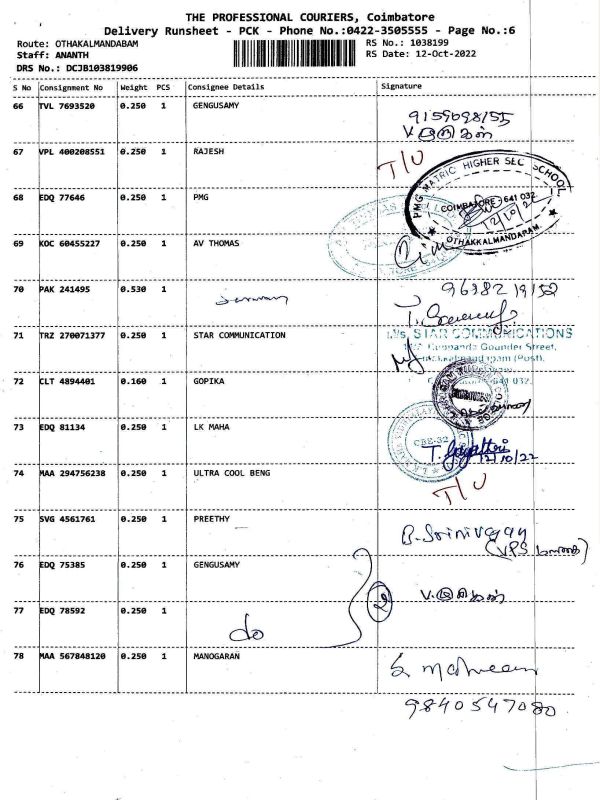 THE PROFESSIONAL COURIERS, Coimbatore
Delivery Runsheet - PCK - Phone No.:0422-3505555 - Page No.:6
Route: OTHAKALMANDABAM RS No.: 1038199
Staff: ANANTH RS Date: 12-Oct-2022
DRS No.: DCJB103819906
S No Consignment No Weight PCS Consignee Details Signature
66 TVL 7693520 0.250 1 GENGUSAMY
9159098155
67 VPL 400208551 0.250 1 RAJESH T/U
PMG MATRIC HIGHER SEC SCHOOL
68 EDQ 77646 0.250 1 PMG
COIMBATORE - 641 032.
12/10/22
69 KOC 60455227 0.250 1 AV THOMAS
OTHAKKALMANDAPAM.
70 PAK 241495 0.530 1
71 TRZ 270071377 0.250 1 STAR COMMUNICATION
M/s. STAR COMMUNICATIONS
Gounder Street,
(Post),
641 032.
72 CLT 4894401 0.160 1 GOPIKA
73 EDQ 81134 0.250 1 LK MAHA
CBE-32
12/10/22
74 MAA 294756238 0.250 1 ULTRA COOL BENG T/U
75 SVG 4561761 0.250 1 PREETHY
B. Srinivasan
76 EDQ 75385 0.250 1 GENGUSAMY
77 EDQ 78592 0.250 1
do 2
78 MAA 567848120 0.250 1 MANOGARAN
9840547080